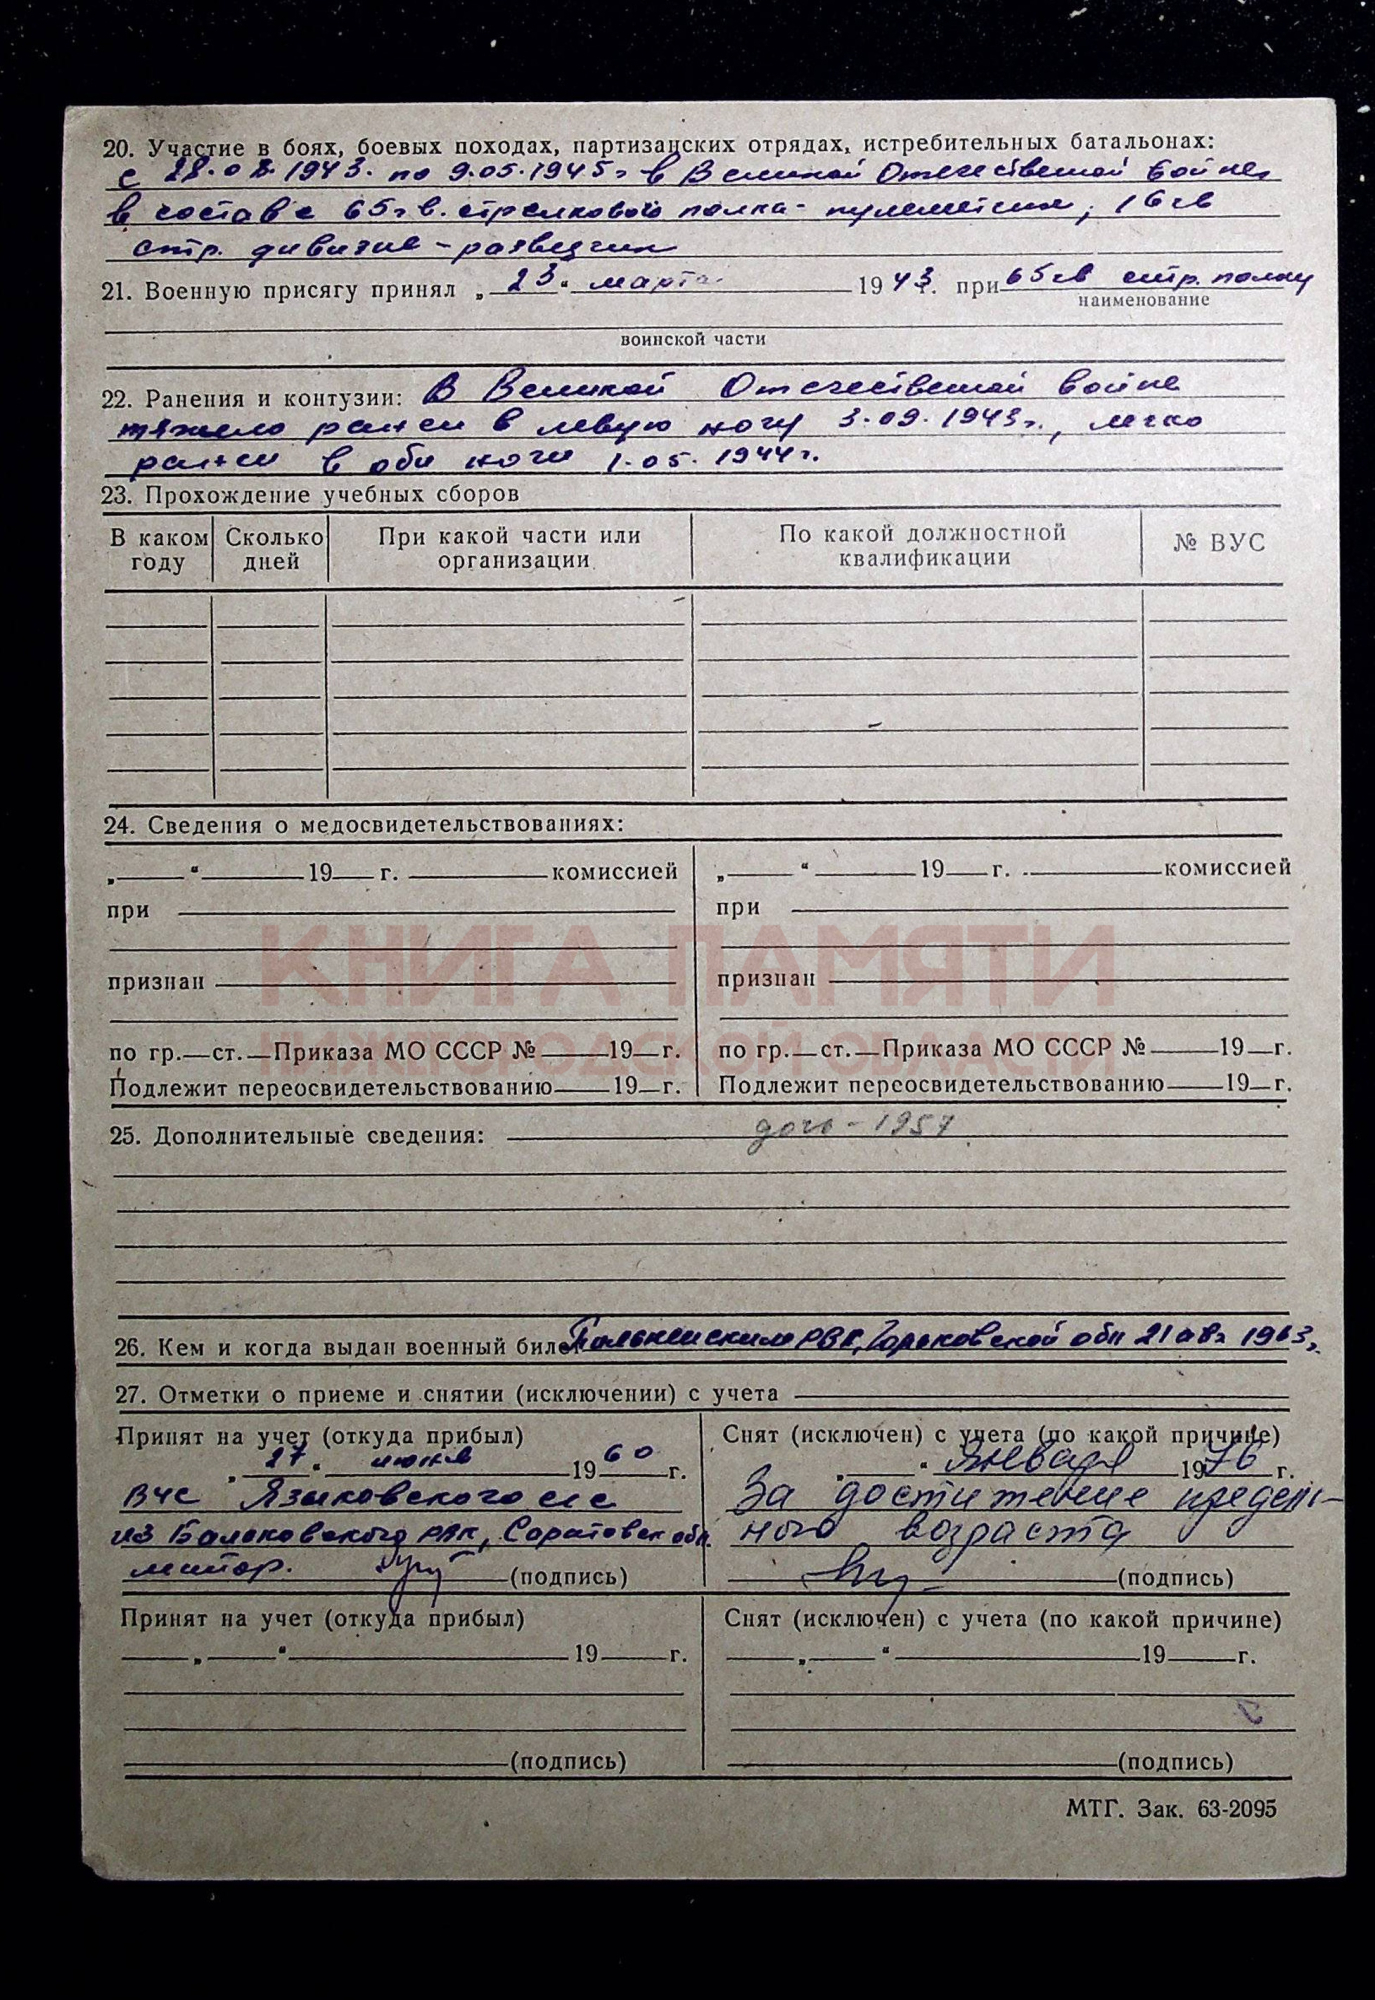 20. Участие в боях, боевых походах, партизанских отрядах, истребительных батальонах:
с 28.08.1943. по 9.05.1945г в Великой Отечественной войне
в составе 65гв. стрелкового полка - пулеметчик, 16гв
стр. дивизие - разведчик
21. Военную присягу принял „23“ марта 1943г. при 65гв стр. полку
наименование
воинской части
22. Ранения и контузии: В Великой Отечественной войне
тяжело ранен в левую ногу 3.09.1943г., легко
ранен в обе ноги 1.05.1944г.
23. Прохождение учебных сборов
В каком году Сколько дней При какой части или организации По какой должностной квалификации № ВУС
24. Сведения о медосвидетельствованиях:
„ “ 19 г. комиссией „ “ 19 г. комиссией
при при
КНИГА ПАМЯТИ
признан признан
НИЖЕГОРОДСКОЙ ОБЛАСТИ
по гр. ст. Приказа МО СССР № 19 г. по гр. ст. Приказа МО СССР № 19 г.
Подлежит переосвидетельствованию 19 г. Подлежит переосвидетельствованию 19 г.
25. Дополнительные сведения: дочь - 1957
26. Кем и когда выдан военный билет РВК, Горьковской обл 21 авг 1963г.
27. Отметки о приеме и снятии (исключении) с учета
Принят на учет (откуда прибыл) Снят (исключен) с учета (по какой причине)
„27“ 1960 г. „ “ Января 1976 г.
Языковского с/с За достижение предель-
из Балаковского РВК, Саратовск обл. ного возраста
(подпись) (подпись)
Принят на учет (откуда прибыл) Снят (исключен) с учета (по какой причине)
„ “ 19 г. „ “ 19 г.
(подпись) (подпись)
МТГ. Зак. 63-2095